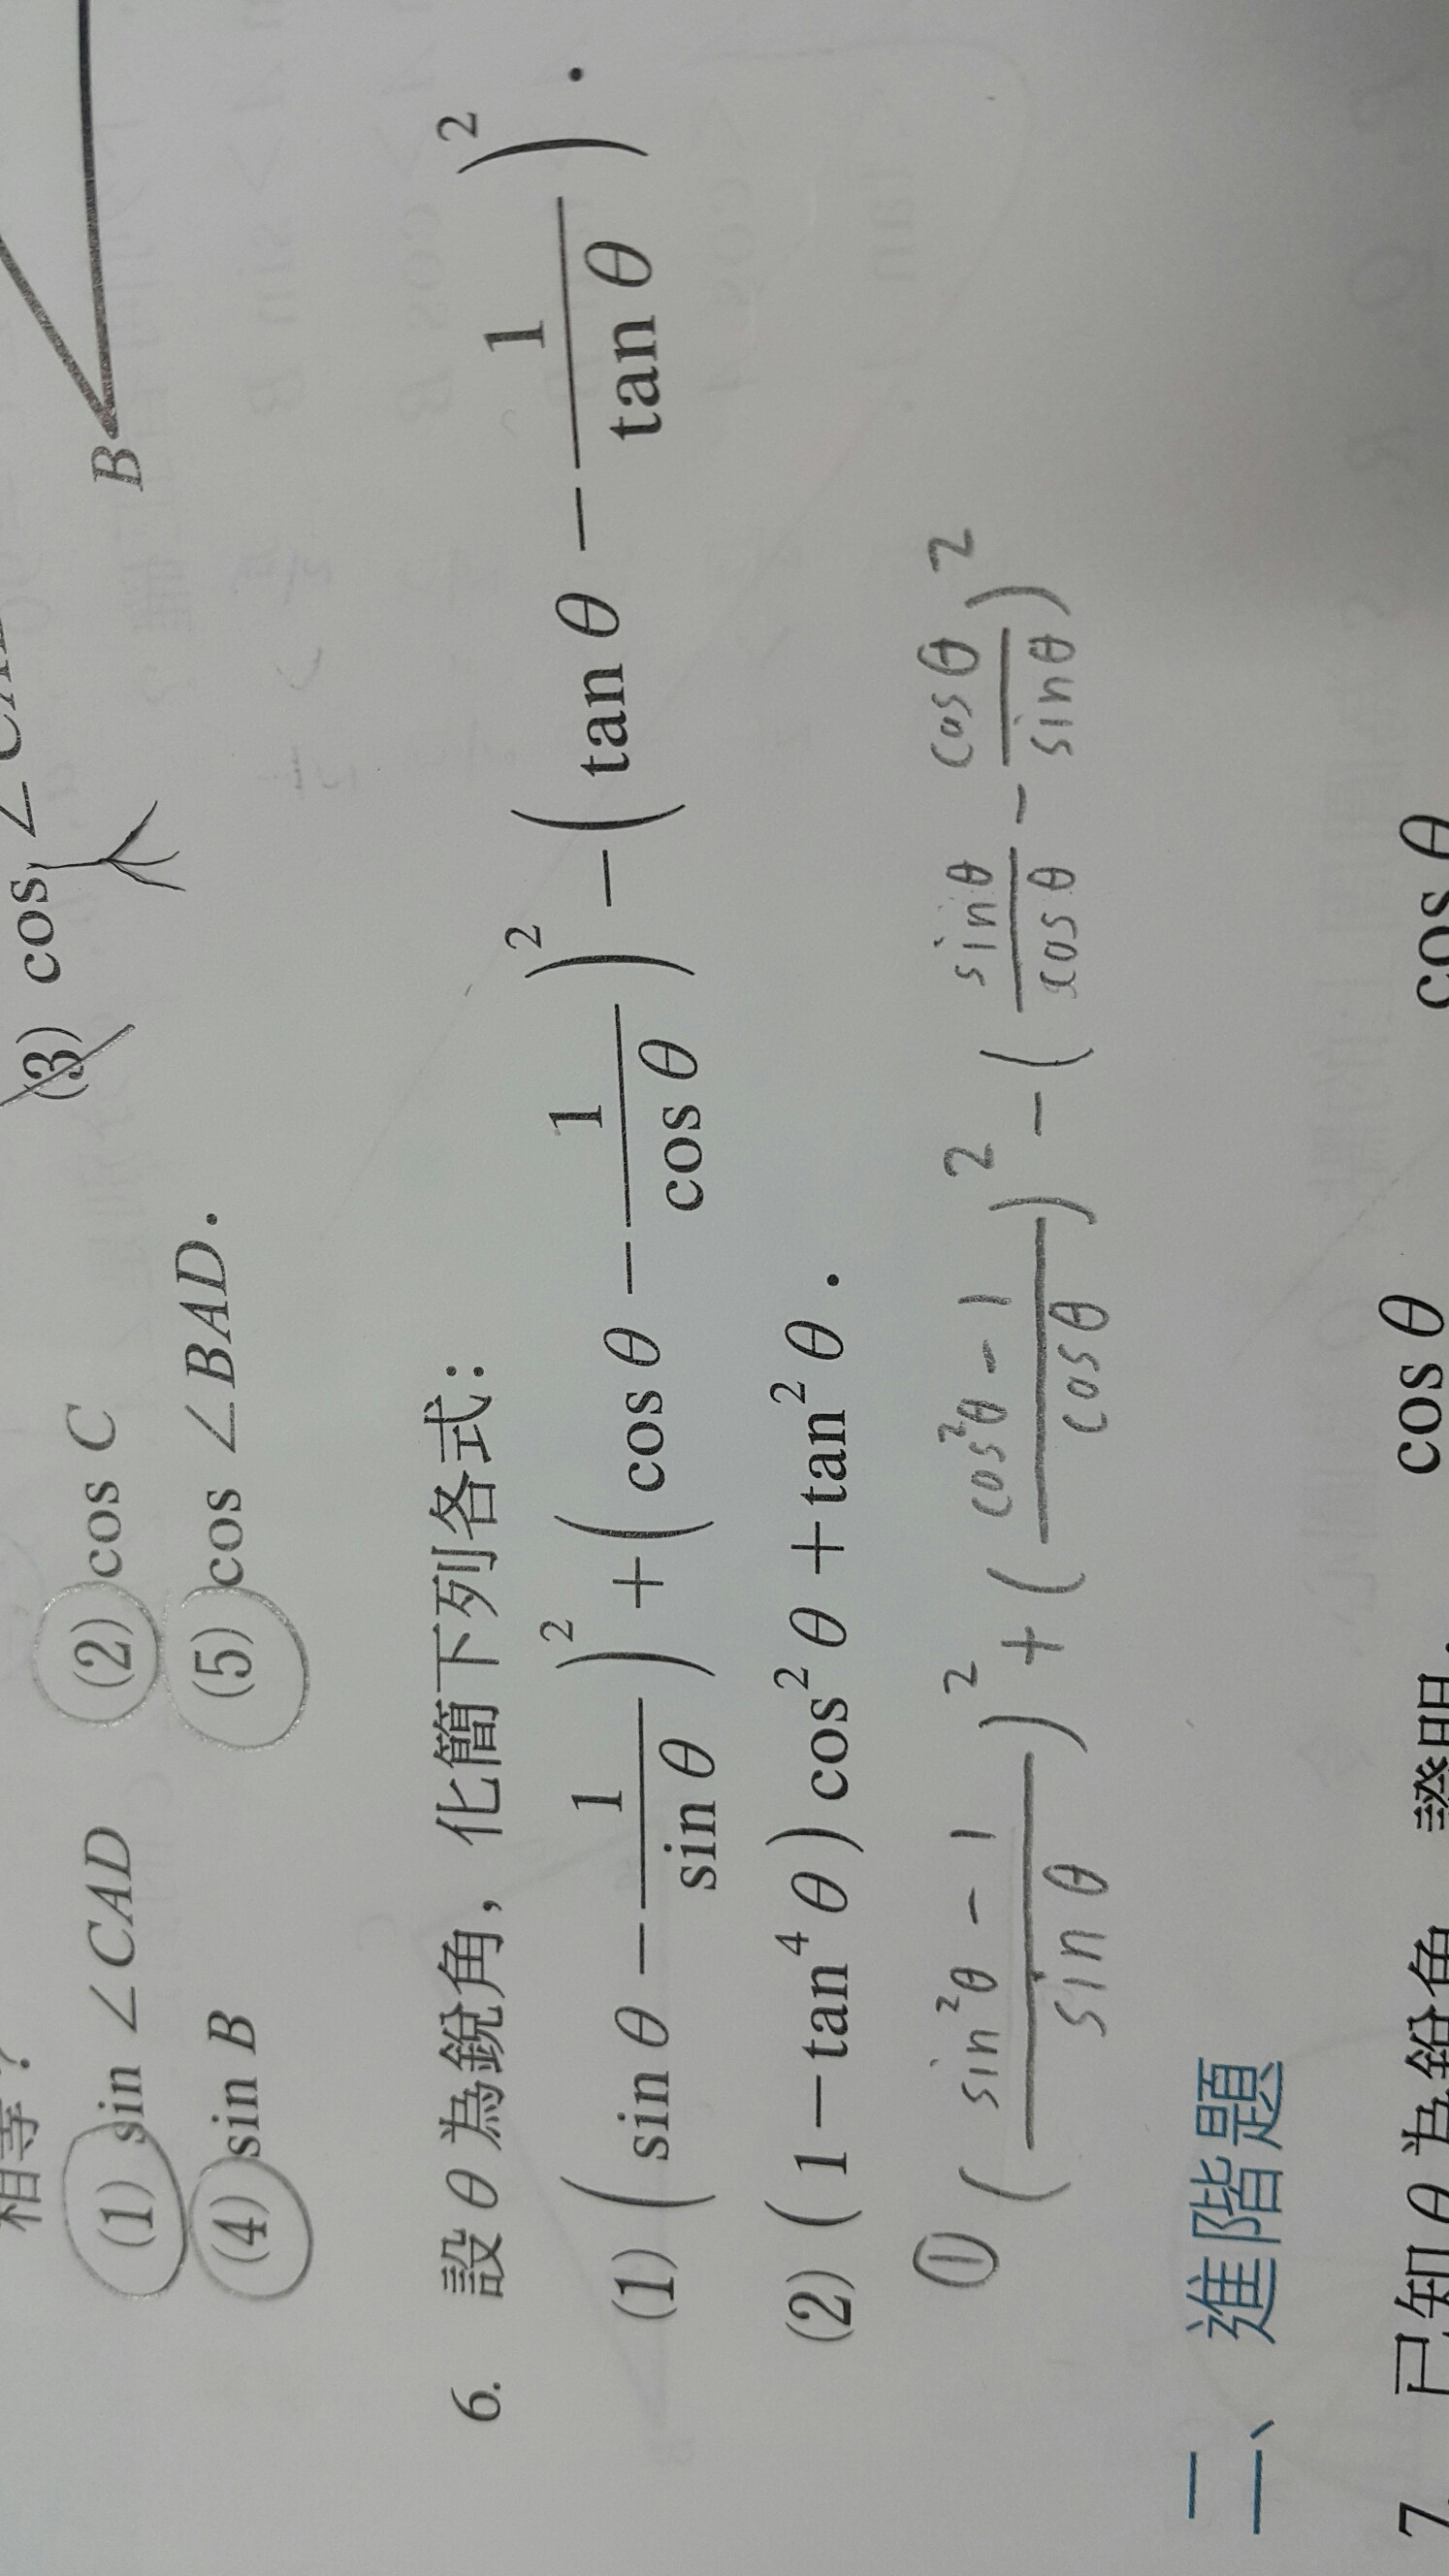 相等?
(1) sin ∠CAD (2) cos C (3) cos ∠
(4) sin B (5) cos ∠BAD.
B
6. 設 θ 為銳角，化簡下列各式：
(1) (sin θ − 1/sin θ)² + (cos θ − 1/cos θ)² − (tan θ − 1/tan θ)².
(2) (1 − tan⁴ θ) cos² θ + tan² θ.
① (sin²θ − 1/sin θ)² + (cos²θ − 1/cos θ)² − (sin θ/cos θ − cos θ/sin θ)²
二、進階題
7. 已知 θ 為銳角 證明 cos θ cos θ